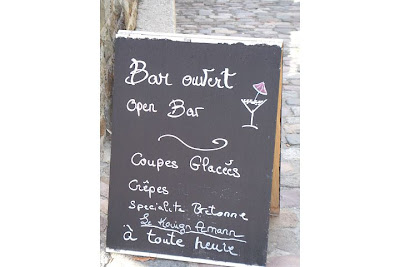 Bar ouvert
Open Bar
Coupes Glacées
Crêpes
Spécialité Bretonne
Le Kouign Amann
à toute heure